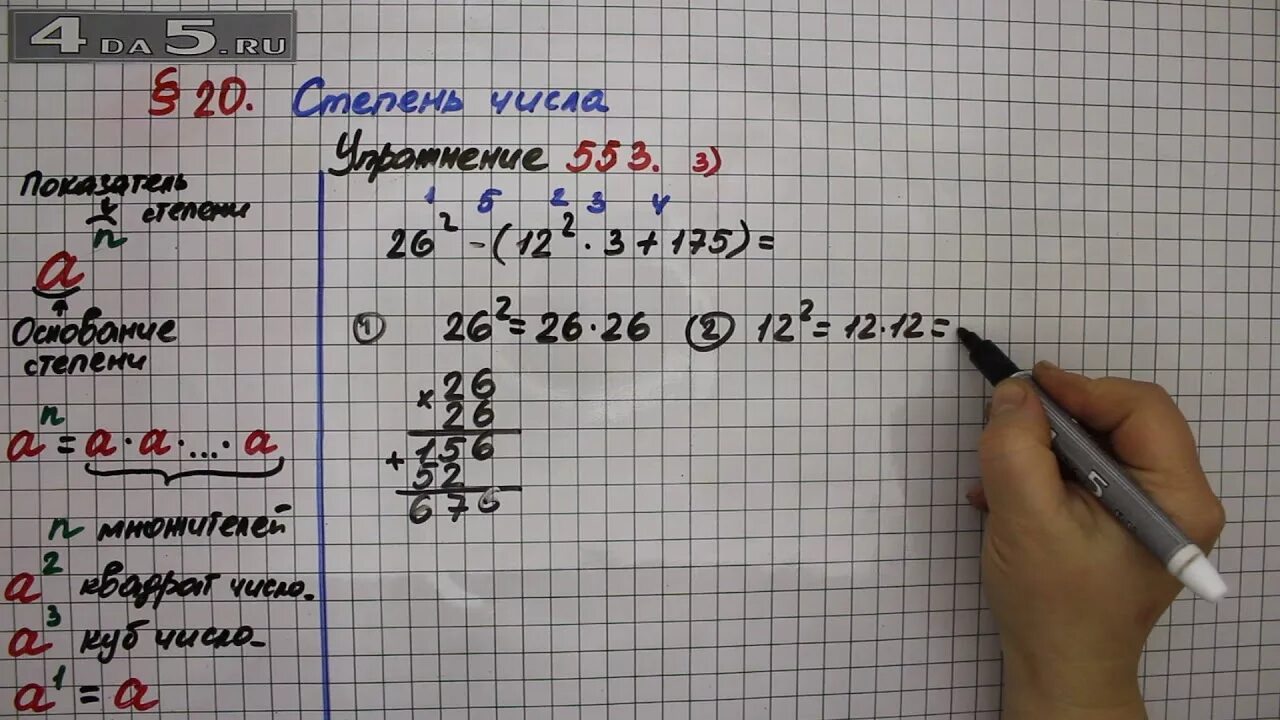 4DA5.RU
§ 20. Степень числа
Упражнение 553. 3)
Показатель
степени
n
a
Основание
степени
aⁿ = a · a · ... · a
n множителей
a² квадрат число.
a³ куб число.
a¹ = a
1 5 2 3 4
26² - (12² · 3 + 175) =
① 26² = 26 · 26 ② 12² = 12 · 12 =
× 26
26
156
+ 52
676
5